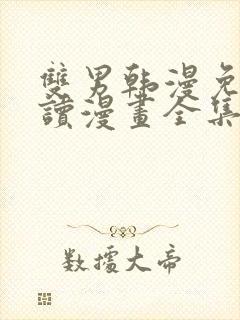 雙男韩漫免
讀漫畫全集
数擄大帝